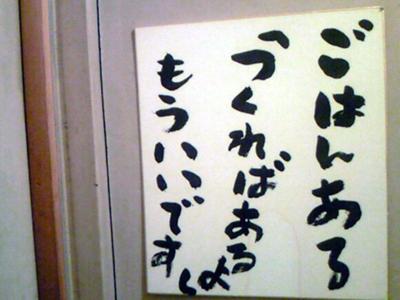 ごはんある
「つくればあるよ」
もういいです